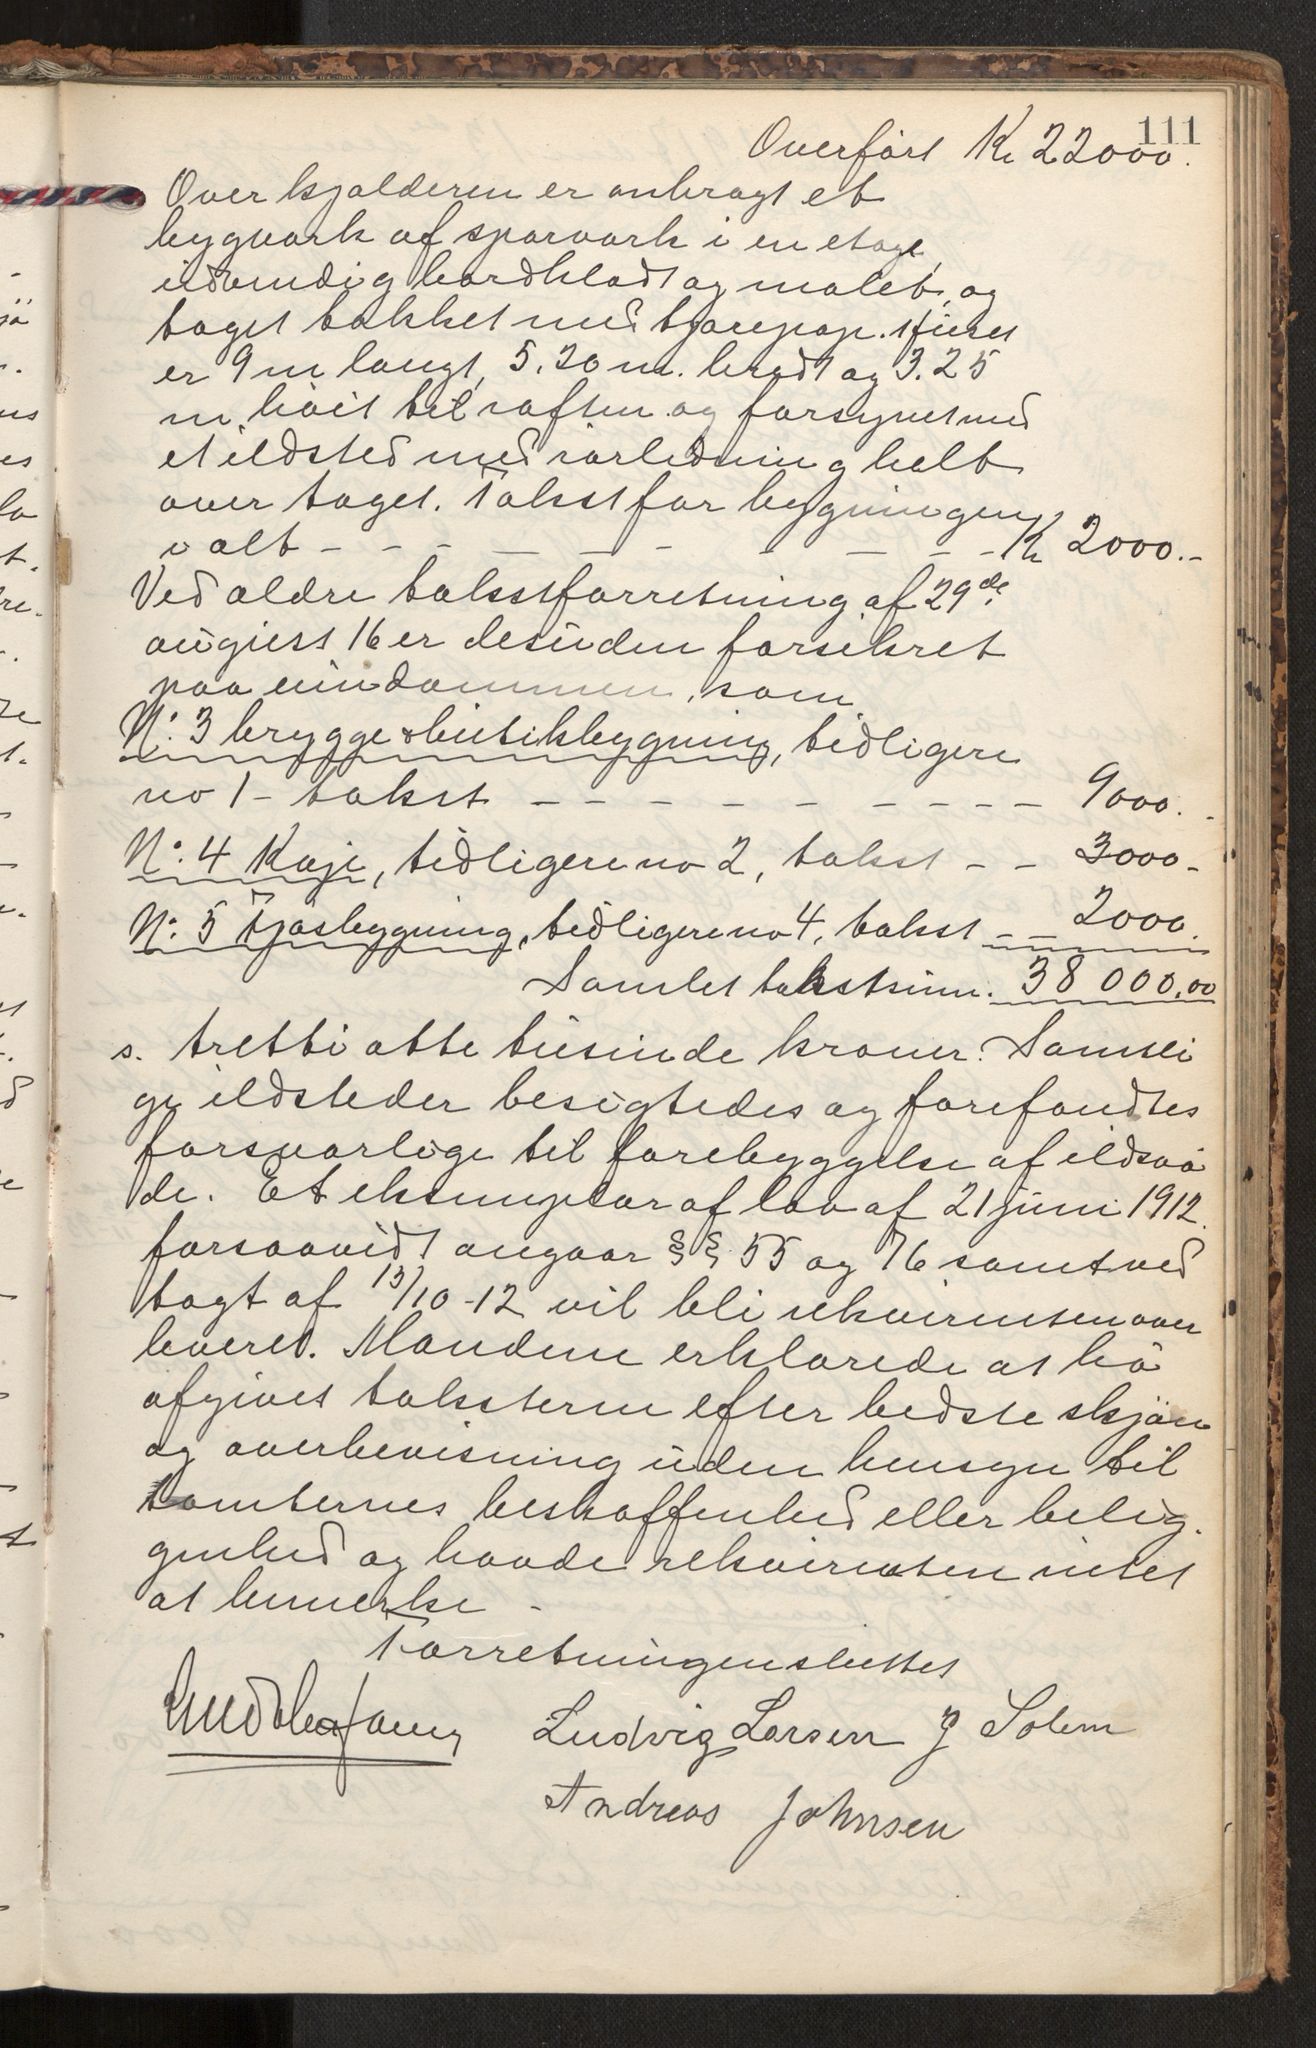 111
Overført Kr 22000.
Over kjælderen er anbragt et
bygværk af sparværk i en etage,
udvendig bordklædt og malet, og
taget tækket med tjærepap. Huset
er 9 m langt, 5.20 m. bredt og 3.25
m høit til raften og forsynet med
et ildsted med rørledning helt
over taget. Takst for bygningen
i alt - - - - - - - - - - Kr 2000.-
Ved ældre takstforretning af 29de
august 16 er desuden forsikret
paa eiendommen, som
No. 3 brygge & butikbygning, tidligere
no 1 - takst - - - - - - - - - - 9000.-
No. 4 Kaje, tidligere no 2, takst - - 3000-
No. 5 Fjøsbygning, tidligere no 4, takst - - 2000.
Samlet takstsum. 38 000.00
s. tretti otte tusinde kroner. Samtli
ge ildsteder besigtedes og forefandtes
forsvarlige til forebyggelse af ildsvå
de. Et eksemplar af lov af 21 juni 1912.
forsaavidt angaar §§ 55 og 76 samt ved
tægt af 13/10-12 vil bli rekvirenten over
leveret. Mændene erklærede at ha
afgivet taksterne efter bedste skjøn
og overbevisning uden hensyn til
tomternes beskaffenhed eller belig-
genhed og havde rekvirenten intet
at bemerke -
Forretningen sluttet
Ludvig Larsen J Solem
Andreas Johnsen